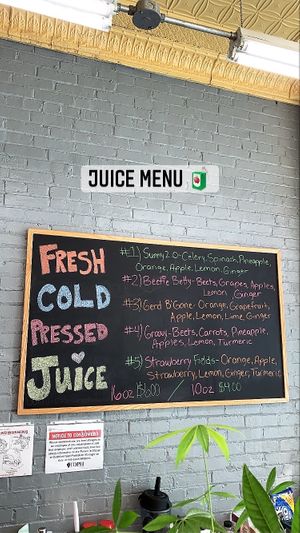 JUICE MENU
FRESH
COLD
PRESSED
JUICE
#1) Sunny 2 O-Celery, Spinach, Pineapple,
Orange, Apple, Lemon, Ginger
#2) Beetie Betty-Beets, Grapes, Apples,
Lemon, Ginger
#3) Gerd B'Gone-Orange, Grapefruit,
Apple, Lemon, Lime, Ginger
#4) Groovy-Beets, Carrots, Pineapple,
Apples, Lemon, Turmeric
#5) Strawberry Fields-Orange, Apple,
Strawberry, Lemon, Ginger, Turmeric
16oz $6.00 / 10oz $4.00
NOTICE TO CONSUMERS